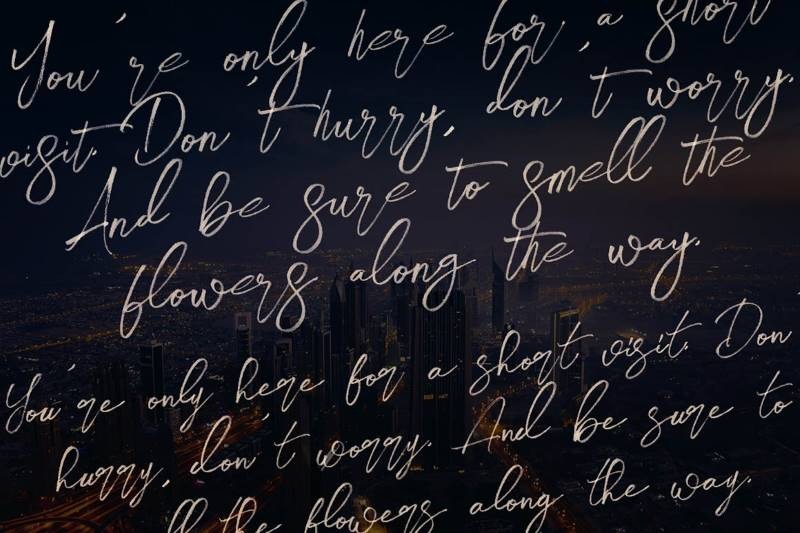 You're only here for a short
visit. Don't hurry, don't worry.
And be sure to smell the
flowers along the way.
You're only here for a short visit. Don
hurry, don't worry. And be sure to
ll the flowers along the way.